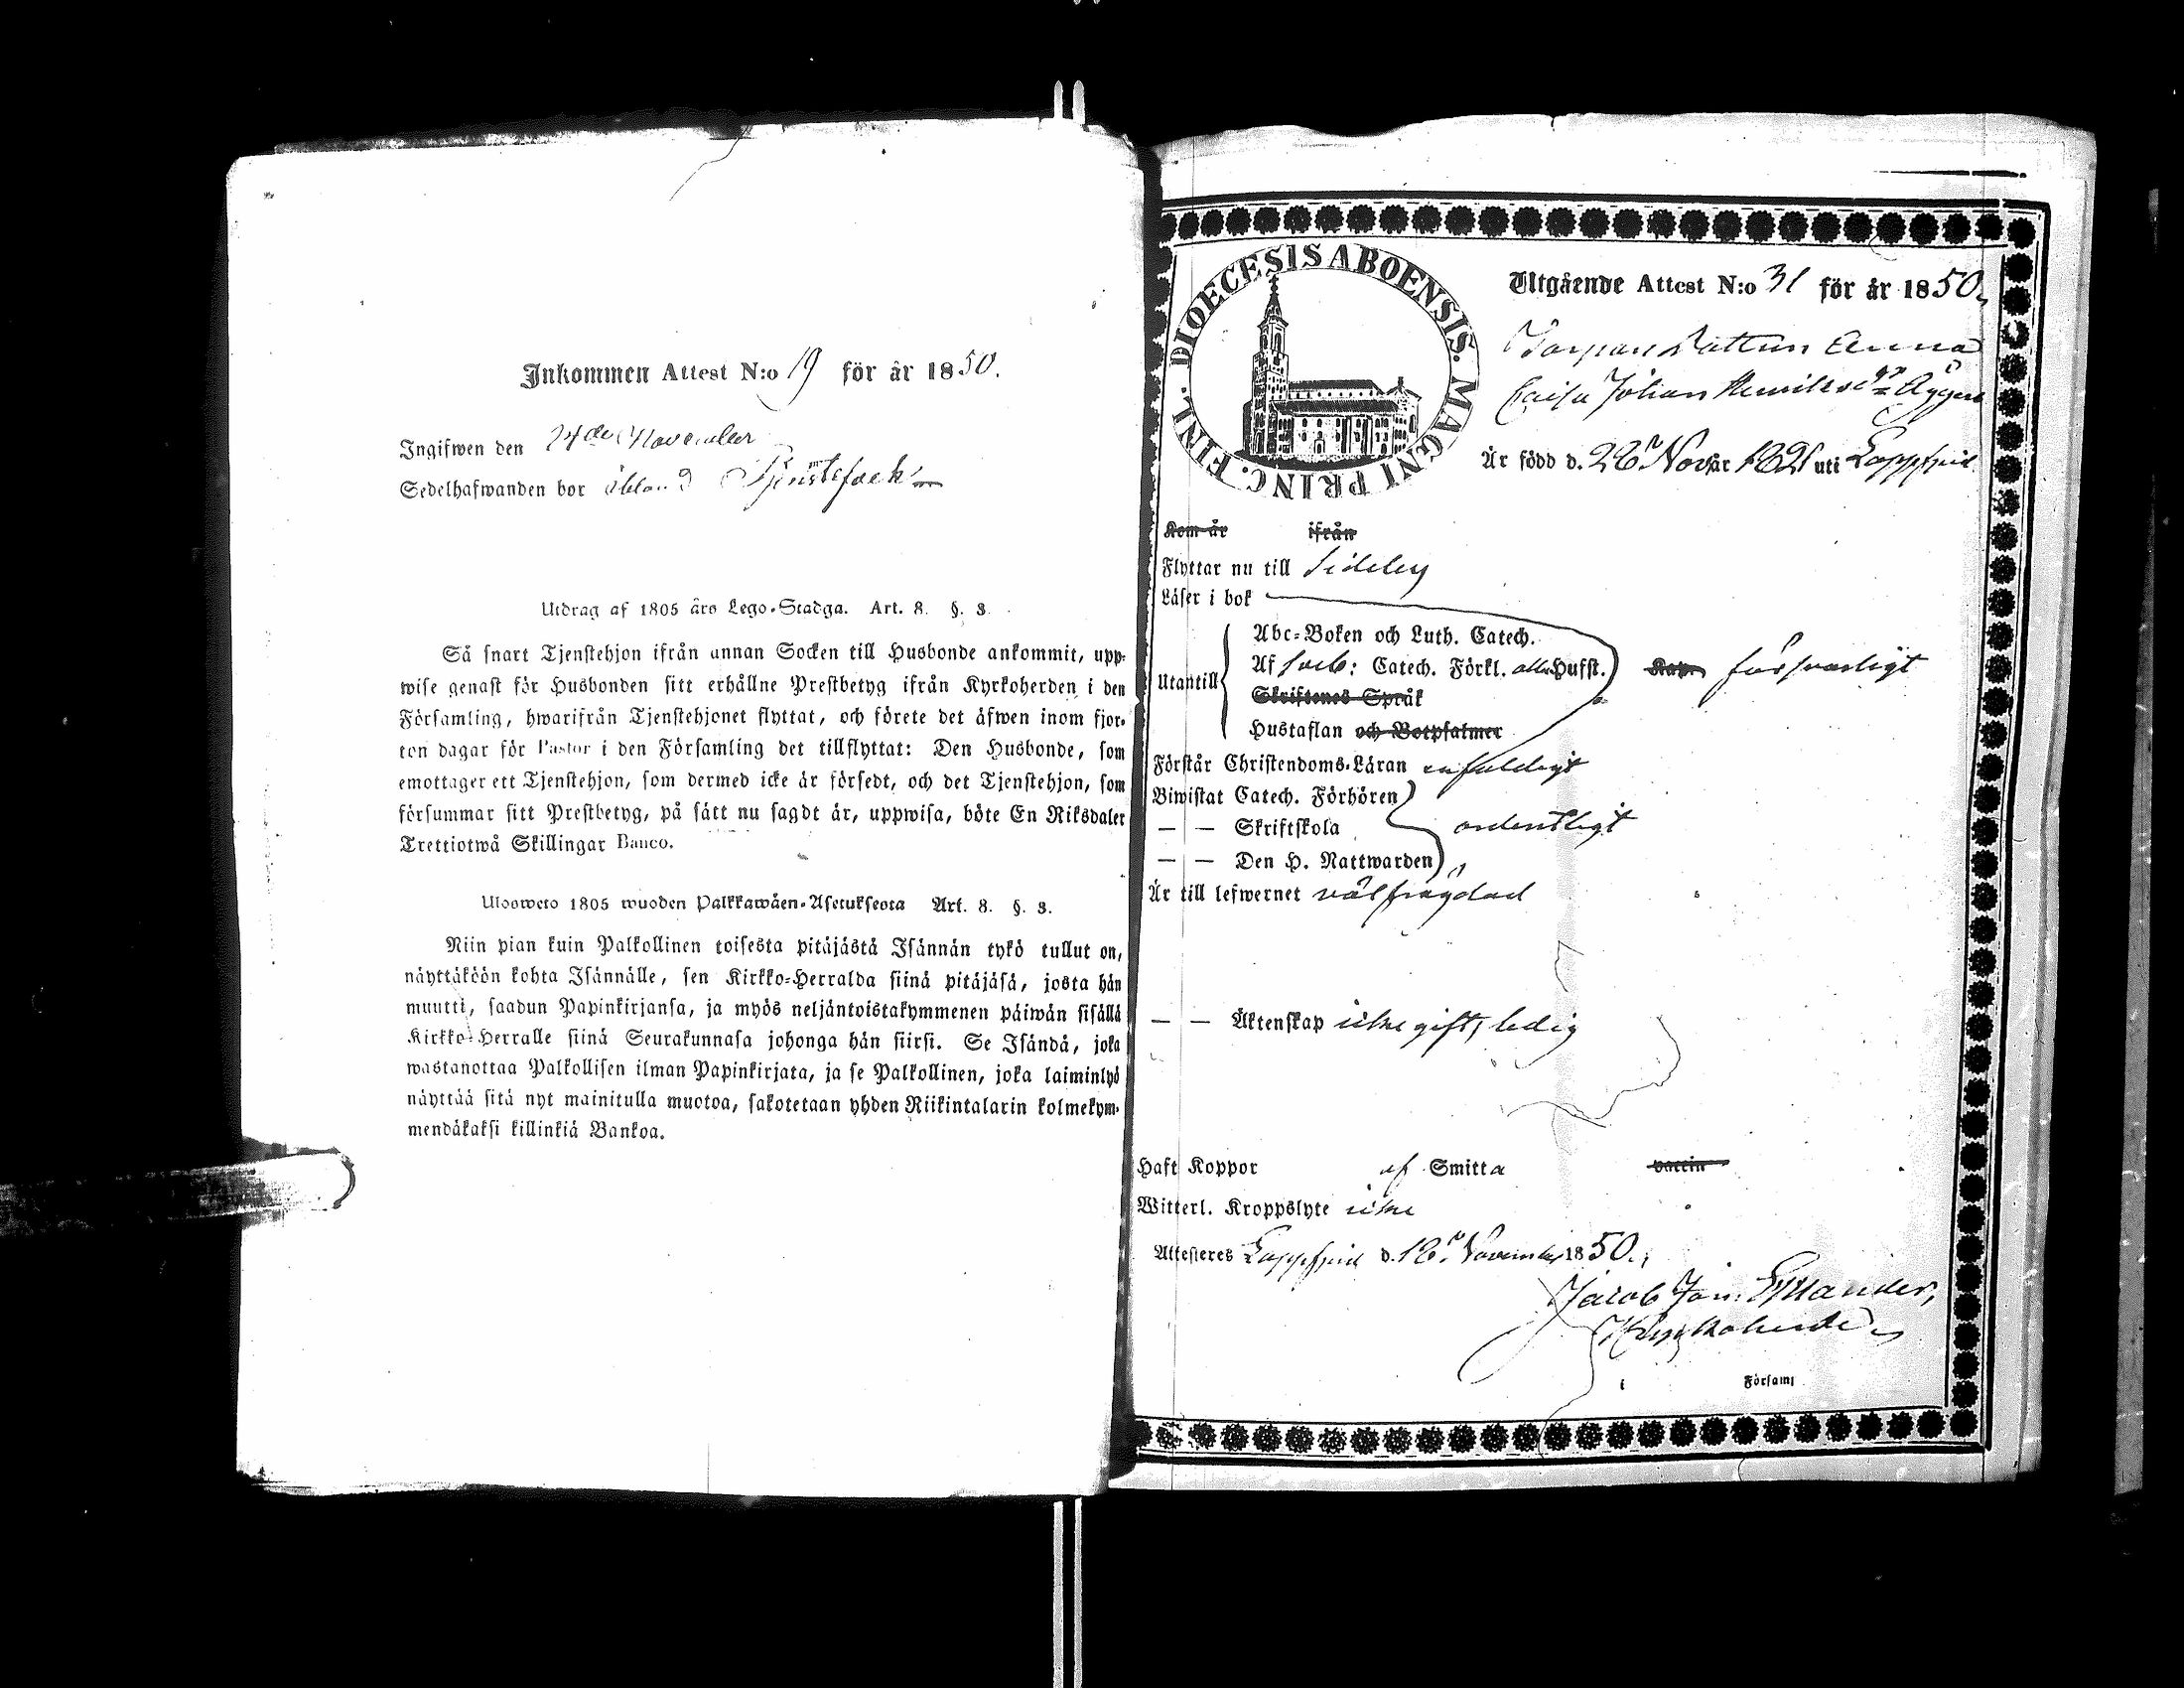 Inkommen Attest N:o 19 för år 1850.
Ingifwen den 24de November
Sedelhafwanden bor ibland Tjenstefolk
Utdrag af 1805 års Lego-Stadga. Art. 8. §. 3.
Så snart Tjenstehjon ifrån annan Socken till Husbonde ankommit, upp-
wise genast för Husbonden sitt erhållne Prestbetyg ifrån Kyrkoherden i den
Församling, hwarifrån Tjenstehjonet flyttat, och förete det äfwen inom fjor-
ton dagar för Pastor i den Församling det tillflyttat: Den Husbonde, som
emottager ett Tjenstehjon, som dermed icke är försedt, och det Tjenstehjon, som
försummar sitt Prestbetyg, på sätt nu sagdt är, uppwisa, böte En Riksdaler
Trettiotwå Skillingar Banco.
Ulosweto 1805 wuoden Palkkawäen-Asetuksesta Art. 8. §. 3.
Niin pian kuin Palkollinen toisesta pitäjästä Isännän tykö tullut on,
näyttäköön kohta Isännälle, sen Kirkko-Herralda siinä pitäjäsä, josta hän
muutti, saadun Papinkirjansa, ja myös neljäntoistakymmenen päiwän sisällä
Kirkko-Herralle siinä Seurakunnasa johonga hän siirsi. Se Isändä, joka
wastanottaa Palkollisen ilman Papinkirjata, ja se Palkollinen, joka laiminlyö
näyttää sitä nyt mainitulla muotoa, sakotetaan yhden Riikintalarin kolmekym-
mendäkaksi killinkiä Bankoa.
DIOECESIS ABOENSIS. MAGNI PRINC. FINL.
Utgående Attest N:o 31 för år 1850.
Anna
Caisa Johan Henriksdr
Är född d. 26 Nov år 1821 uti Lappfjerd
Kom år ifrån
Flyttar nu till Sideby
Läser i bok
Abc-Boken och Luth. Catech.
Utantill Af Sveb: Catech. Förkl. alla Hufst. Kap. försvarligt
Skriftenes Språk
Hustaflan och Botpsalmer
Förstår Christendoms-Läran enfaldigt
Biwistat Catech. Förhören
— — Skriftskola ordentligt
— — Den H. Nattwarden
Är till lefwernet välfrägdad
— — Äktenskap icke gift, ledig
Haft Koppor af Smitta vaccin
Witterl. Kroppslyte icke
Attesteres Lappfjerd d. 16 November 1850.
Jacob Joh.
Kyrkoherde
i Församl